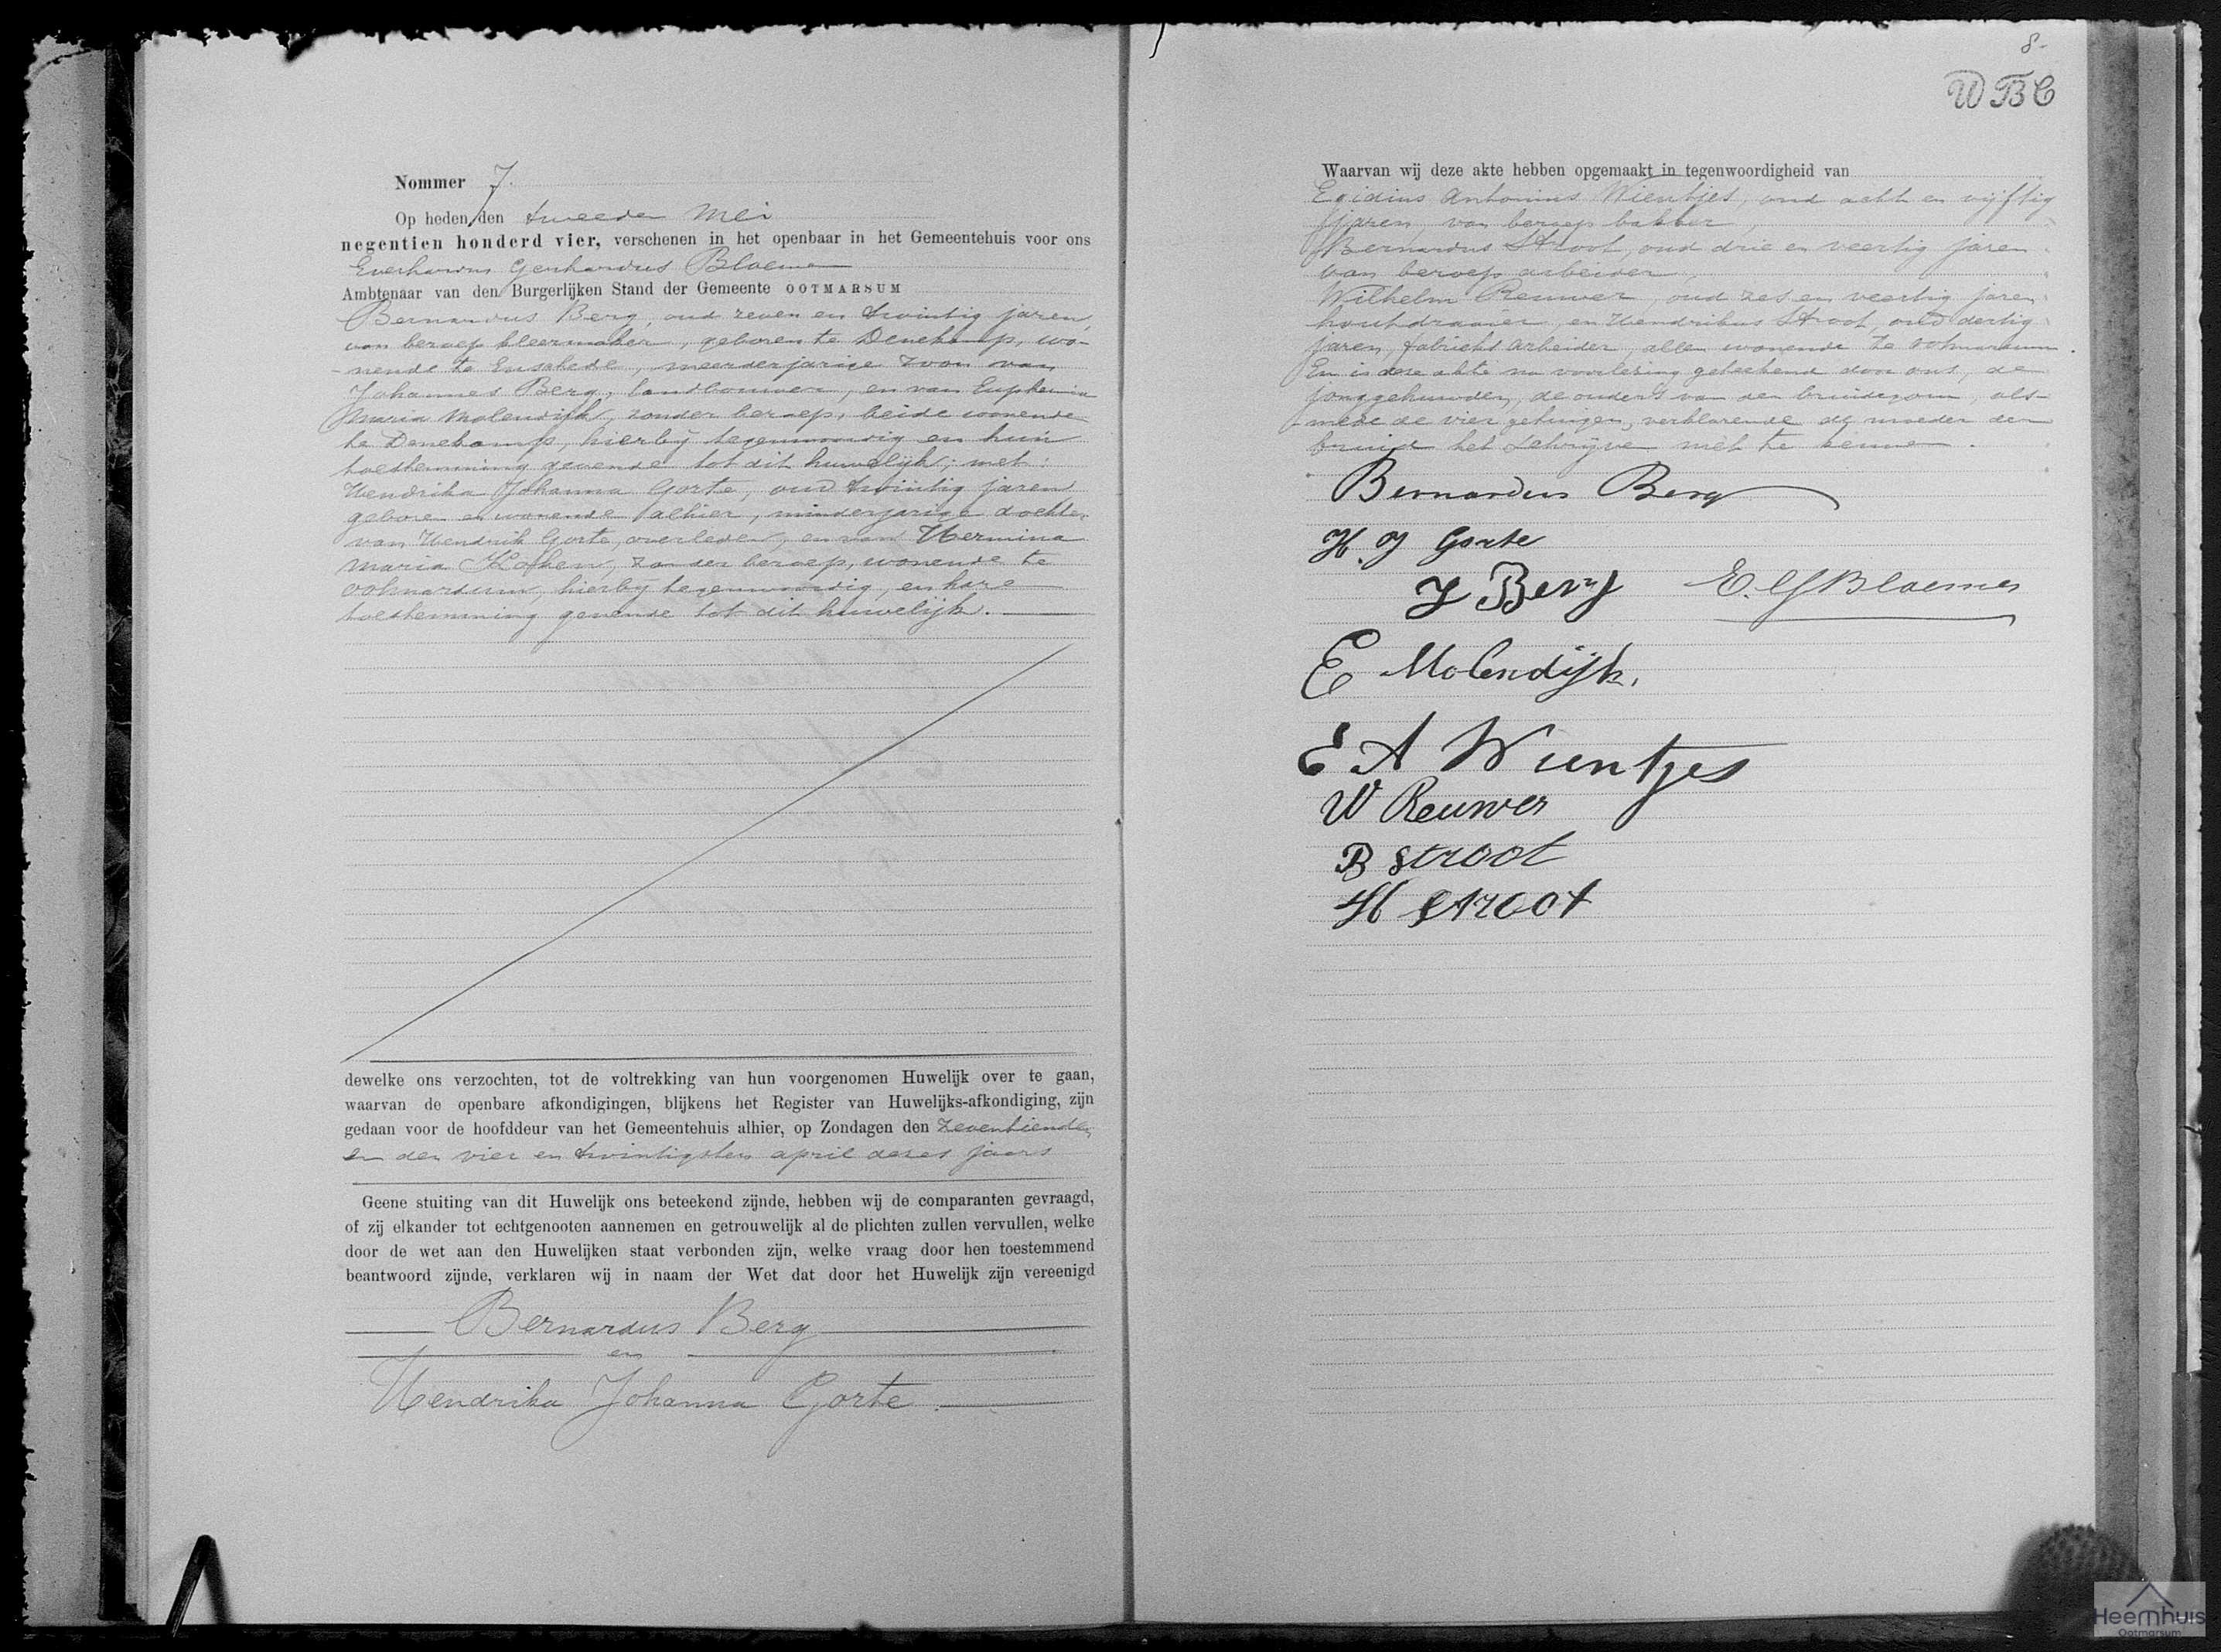 Nommer 7.
Op heden den tweeden Mei
negentien honderd vier, verschenen in het openbaar in het Gemeentehuis voor ons
Everhardus Gerhardus Bloemen
Ambtenaar van den Burgerlijken Stand der Gemeente OOTMARSUM
Bernardus Berg, oud zeven en twintig jaren,
van beroep kleermaker, geboren te Denekamp, wo-
nende te Enschede, meerderjarige zoon van
Johannes Berg, landbouwer, en van Euphemia
Maria Molendijk, zonder beroep, beide wonende
te Denekamp, hierbij tegenwoordig en hun
toestemming gevende tot dit huwelijk; met:
Hendrika Johanna Gorte, oud twintig jaren
geboren en wonende alhier, minderjarige dochter
van Hendrik Gorte, overleden, en van Hermina
Maria, zonder beroep, wonende te
Ootmarsum, hierbij tegenwoordig, en hare
toestemming gevende tot dit huwelijk.
dewelke ons verzochten, tot de voltrekking van hun voorgenomen Huwelijk over te gaan,
waarvan de openbare afkondigingen, blijkens het Register van Huwelijks-afkondiging, zijn
gedaan voor de hoofddeur van het Gemeentehuis alhier, op Zondagen den zeventienden
en den vier en twintigsten april dezes jaars
Geene stuiting van dit Huwelijk ons beteekend zijnde, hebben wij de comparanten gevraagd,
of zij elkander tot echtgenooten aannemen en getrouwelijk al de plichten zullen vervullen, welke
door de wet aan den Huwelijken staat verbonden zijn, welke vraag door hen toestemmend
beantwoord zijnde, verklaren wij in naam der Wet dat door het Huwelijk zijn vereenigd
Bernardus Berg
en
Hendrika Johanna Gorte.
8-
WBC
Waarvan wij deze akte hebben opgemaakt in tegenwoordigheid van
Egidius Antonius Wientjes, oud acht en vijftig
jaren, van beroep bakker,
Bernardus Stroot, oud drie en veertig jaren
van beroep arbeider,
Wilhelm Reuwer, oud zes en veertig jaren
houtdraaier, en Hendrikus Stroot, oud dertig
jaren, fabrieks arbeider, allen wonende te Ootmarsum.
En is deze akte na voorlezing geteekend door ons, de
jonggehuwden, de ouders van den bruidegom, als-
mede de vier getuigen, verklarende de moeder der
bruid het schrijven niet te kennen.
Bernardus Berg
H. J Gorte
J Berg E. G Bloemen
E Molendijk.
E A Wientjes
W Reuwer
B stroot
H stroot
Heernhuis
Ootmarsum